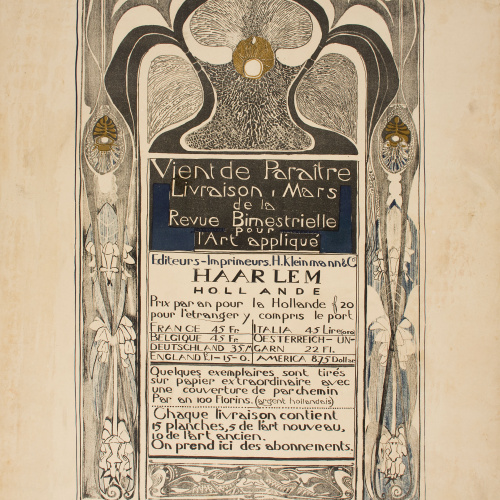 Vient de Paraître
Livraison 1 Mars
de la
Revue Bimestrielle
pour
l'Art appliqué
Editeurs-Imprimeurs, H. Kleinmann & Co
HAARLEM
HOLLANDE
Prix par an pour la Hollande ƒ 20
pour l'etranger y compris le port
FRANCE 45 Fr. ITALIA 45 Lire (oro)
BELGIQUE 45 Fr. OESTERREICH-UN-
DEUTSCHLAND 35 M GARN 22 Fl.
ENGLAND £1-15-0. AMERICA 8.75 Dollar
Quelques exemplaires sont tirés
sur papier extraordinaire avec
une couverture de parchemin
Par an 100 Florins. (argent hollandais)
Chaque livraison contient
15 planches, 5 de l'art nouveau,
10 de l'art ancien.
On prend ici des abonnements.